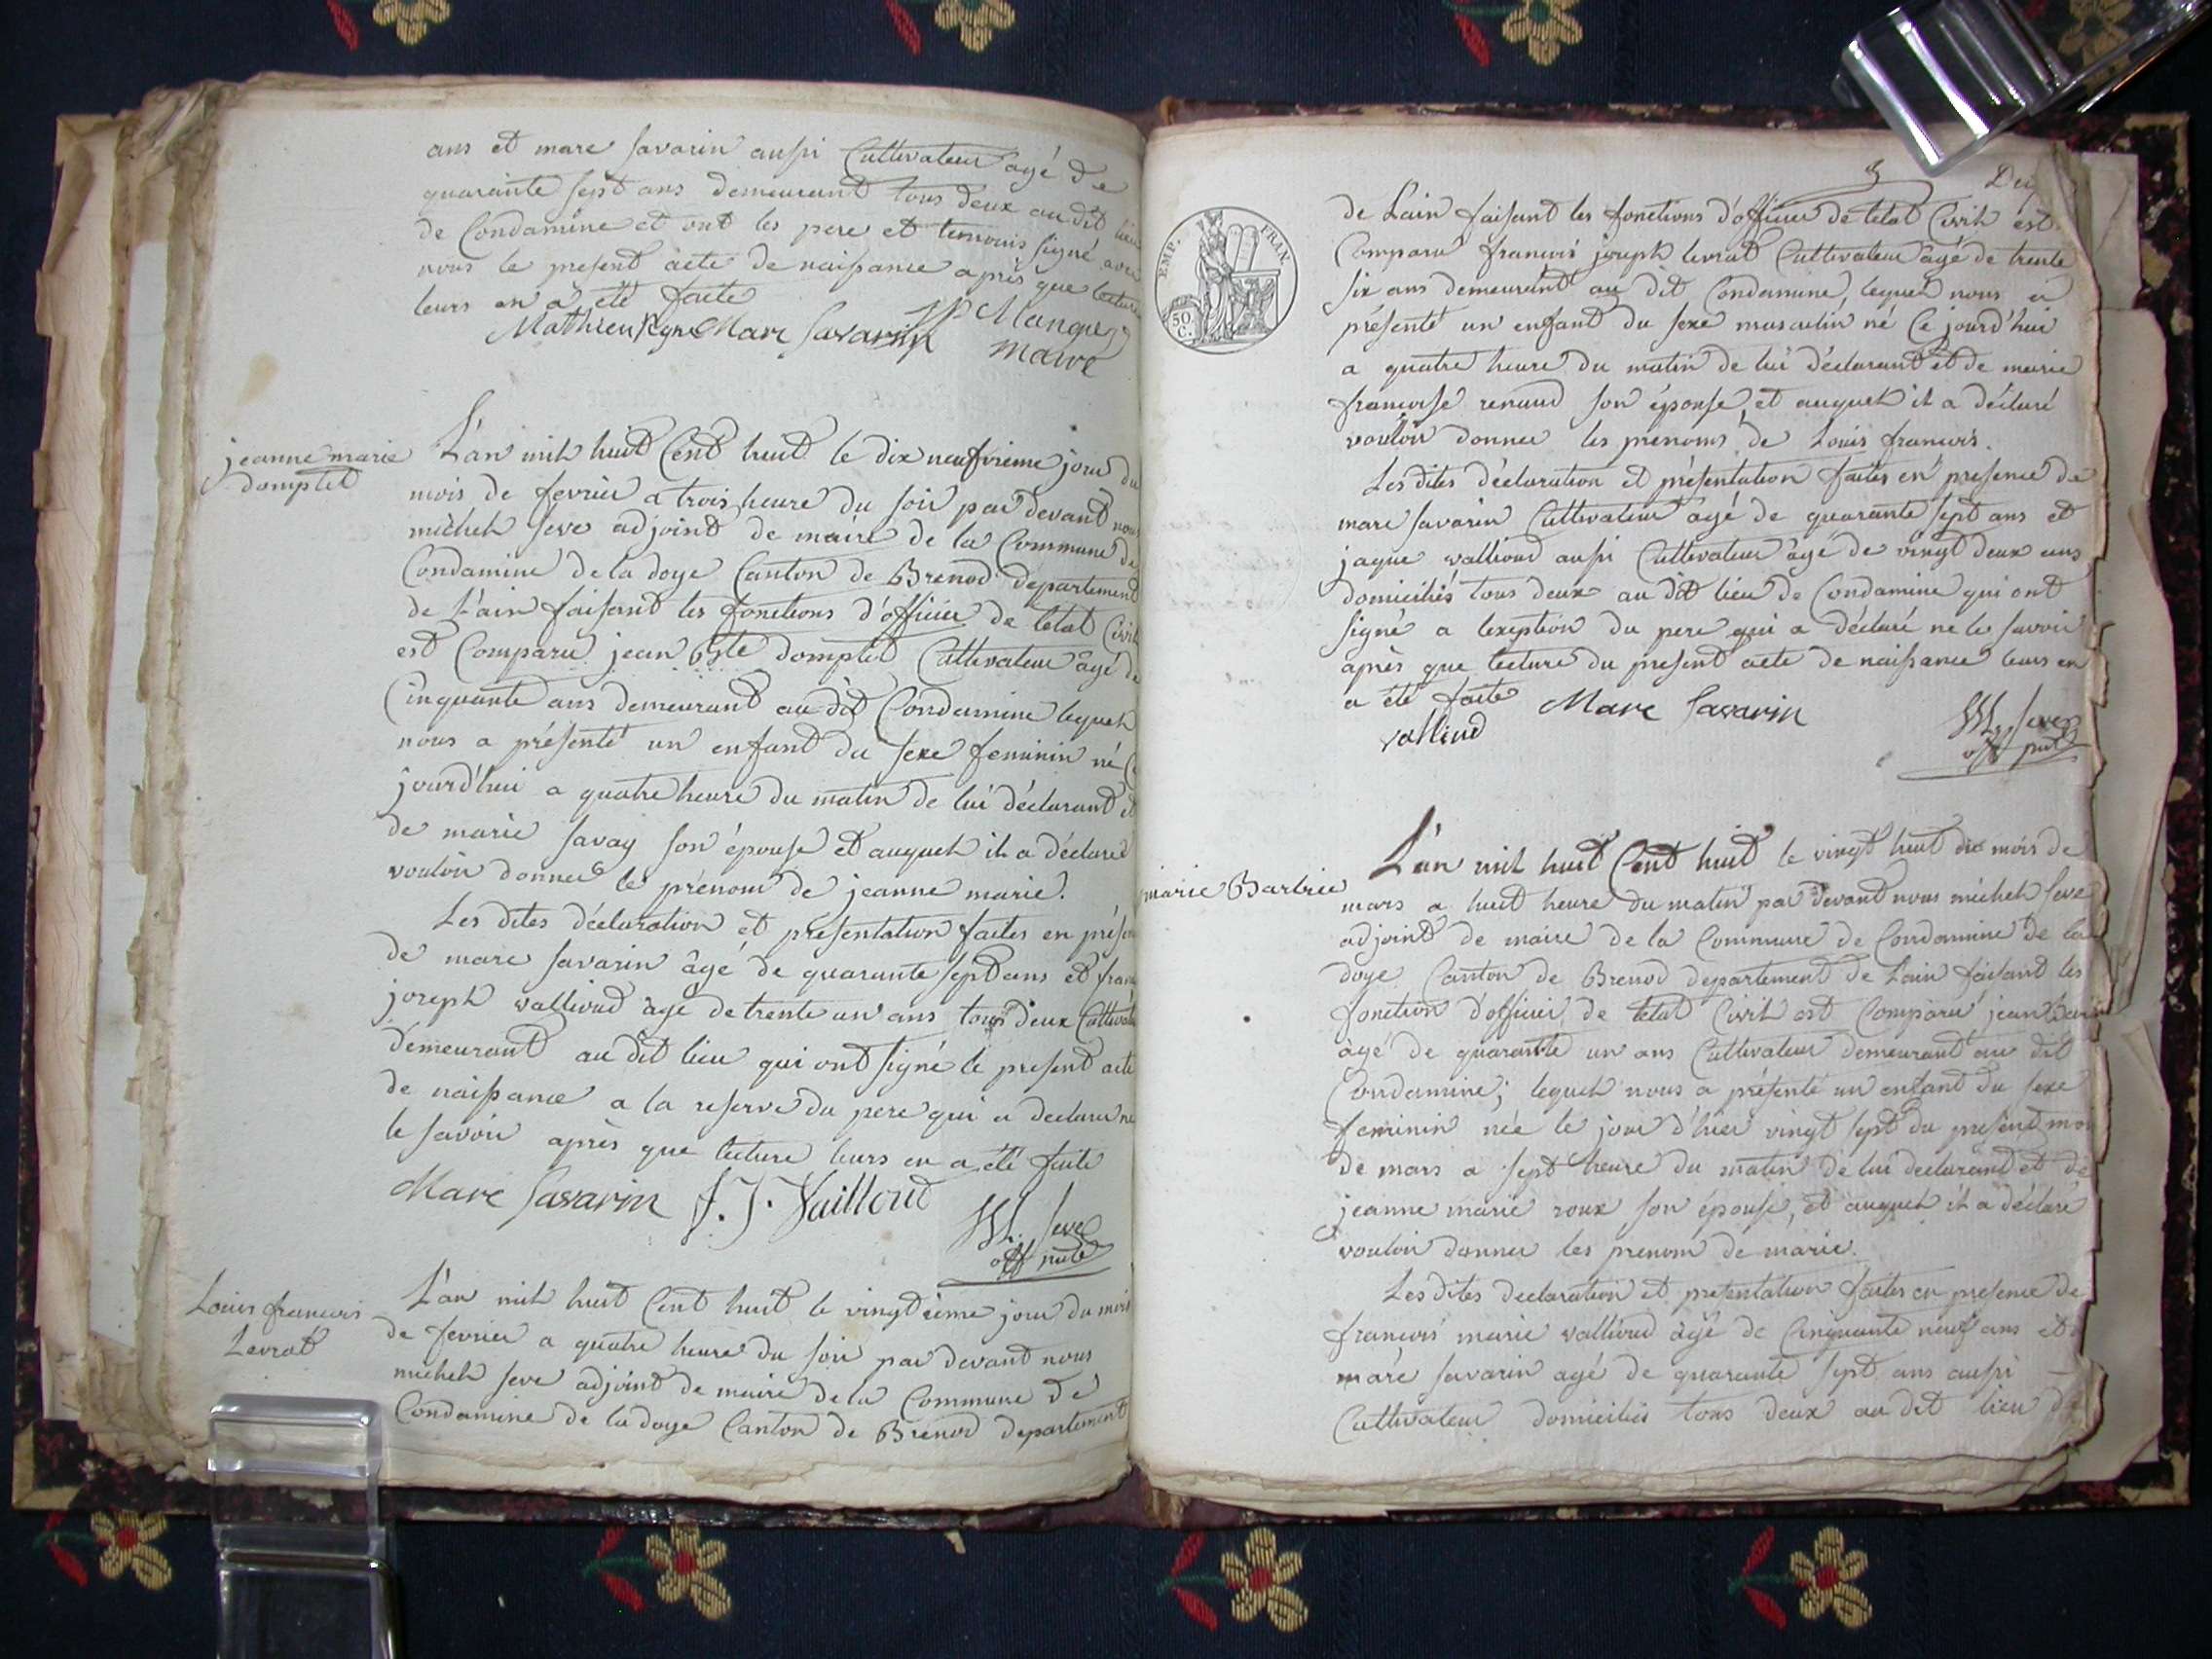 ans et marc savarin aussi Cultivateur agé de
quarante sept ans demeurant tous deux au dit lieu
de Condamine et ont les pere et temoins signé avec
nous le present acte de naissance après que lecture
leurs en a été faite
Mathieu Marc Savarin
maire
jeanne marie
domptet
L'an mil huit Cent huit le dix neufvieme jour du
mois de fevrier a trois heure du soir par devant nous
michel seve adjoint de maire de la Commune de
Condamine de la doye Canton de Brenod departement
de l'ain faisant les fonctions d'officier de letat Civil
est Comparu jean Bte domptet Cultivateur agé de
Cinquante ans demeurant au dit Condamine lequel
nous a présenté un enfant du sexe feminin né Ce
jourd'hui a quatre heure du matin de lui déclarant et
de marie savay son épouse et auquel il a déclaré
vouloir donner le prénom de jeanne marie.
Les dites déclaration et présentation faites en présence
de marc savarin âgé de quarante sept ans et
joseph vallioud agé de trente un ans tous deux
demeurant au dit lieu qui ont signé le present acte
de naissance a la reserve du pere qui a declaré ne
le savoir après que lecture leurs en a été faite
Marc Savarin J. J. Vailloud
M. Seve
off pub
Louis francois
Levrat
L'an mil huit Cent huit le vingtieme jour du mois
de fevrier a quatre heure du soir par devant nous
michel seve adjoint de maire de la Commune de
Condamine de la doye Canton de Brenod departement
3
EMP. FRAN
50
C.
de Lain faisant les fonctions d'officier de letat Civil est
Comparu francois joseph levrat Cultivateur agé de trente
six ans demeurant au dit Condamine, lequel nous a
présenté un enfant du sexe masculin né Ce jourd'hui
a quatre heure du matin de lui déclarant et de marie
francoise renaud son épouse, et auquel il a déclaré
vouloir donner les prenoms de Louis francois.
Les dites déclaration et présentation faites en presence de
marc savarin Cultivateur agé de quarante sept ans et
jaque vallioud aussi Cultivateur âgé de vingt deux ans
domiciliés tous deux au dit lieu de Condamine qui ont
signé a lexeption du pere qui a déclaré ne le savoir
après que lecture du present acte de naissance leurs en
a été faite Marc Savarin
valliud
M. Seve
off pub
marie Barbier
L'an mil huit Cent huit le vingt huit du mois de
mars a huit heure du matin par devant nous michel seve
adjoint de maire de la Commune de Condamine de la
doye Canton de Brenod departement de Lain faisant les
fonction d'officier de letat Civil est Comparu jean
âgé de quarante un ans Cultivateur demeurant au dit
Condamine; lequel nous a présenté un enfant du sexe
feminin née le jour d'hier vingt sept du present mois
de mars a sept heure du matin de lui declarant et de
jeanne marie roux son épouse, et auquel il a déclaré
vouloir donner les prenom de marie.
Les dites declaration et presentation faites en presence de
francois marie vallioud âgé de Cinquante neuf ans et
marc savarin agé de quarante sept ans aussi
Cultivateur domiciliés tous deux au dit lieu de